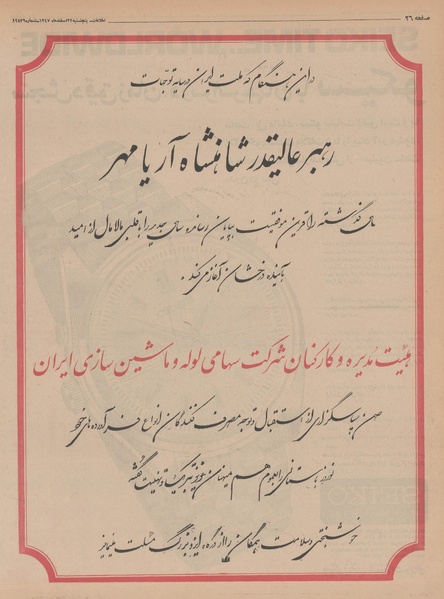 صفحه ۲۶
اطلاعات - پنجشنبه ۲۲ اسفندماه ۱۳۴۷ - شماره ۱۲۸۳۶
در این هنگام که ملت ایران در سایه توجهات
رهبر عالیقدر شاهنشاه آریا مهر
سالی گذشته را قرین موفقیت بپایان رسانده سالی جدید را با قلبی مالامال از امید
بآینده درخشان آغاز می کند .
هیئت مدیره و کارکنان شرکت سهامی لوله و ماشین سازی ایران
ضمن سپاسگزاری از استقبال و توجه مصرف کنندگان انواع فرآورده های خود
نوروز باستانی را بعموم هم میهنان عزیز تبریک و تهنیت گفته
خوشبختی و سلامت همگان را از درگاه ایزد بزرگ مسئلت مینماید